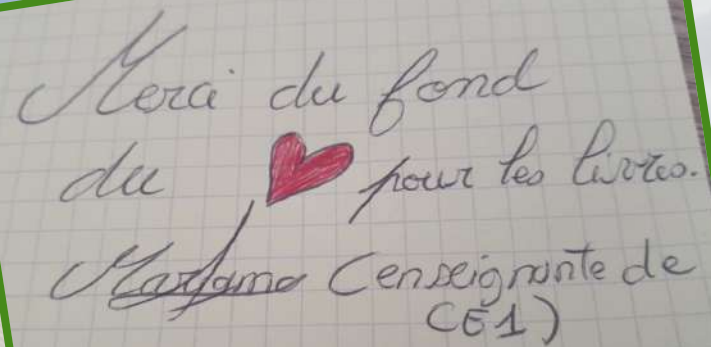 Merci du fond
du pour les livres.
(enseignante de
CE1)